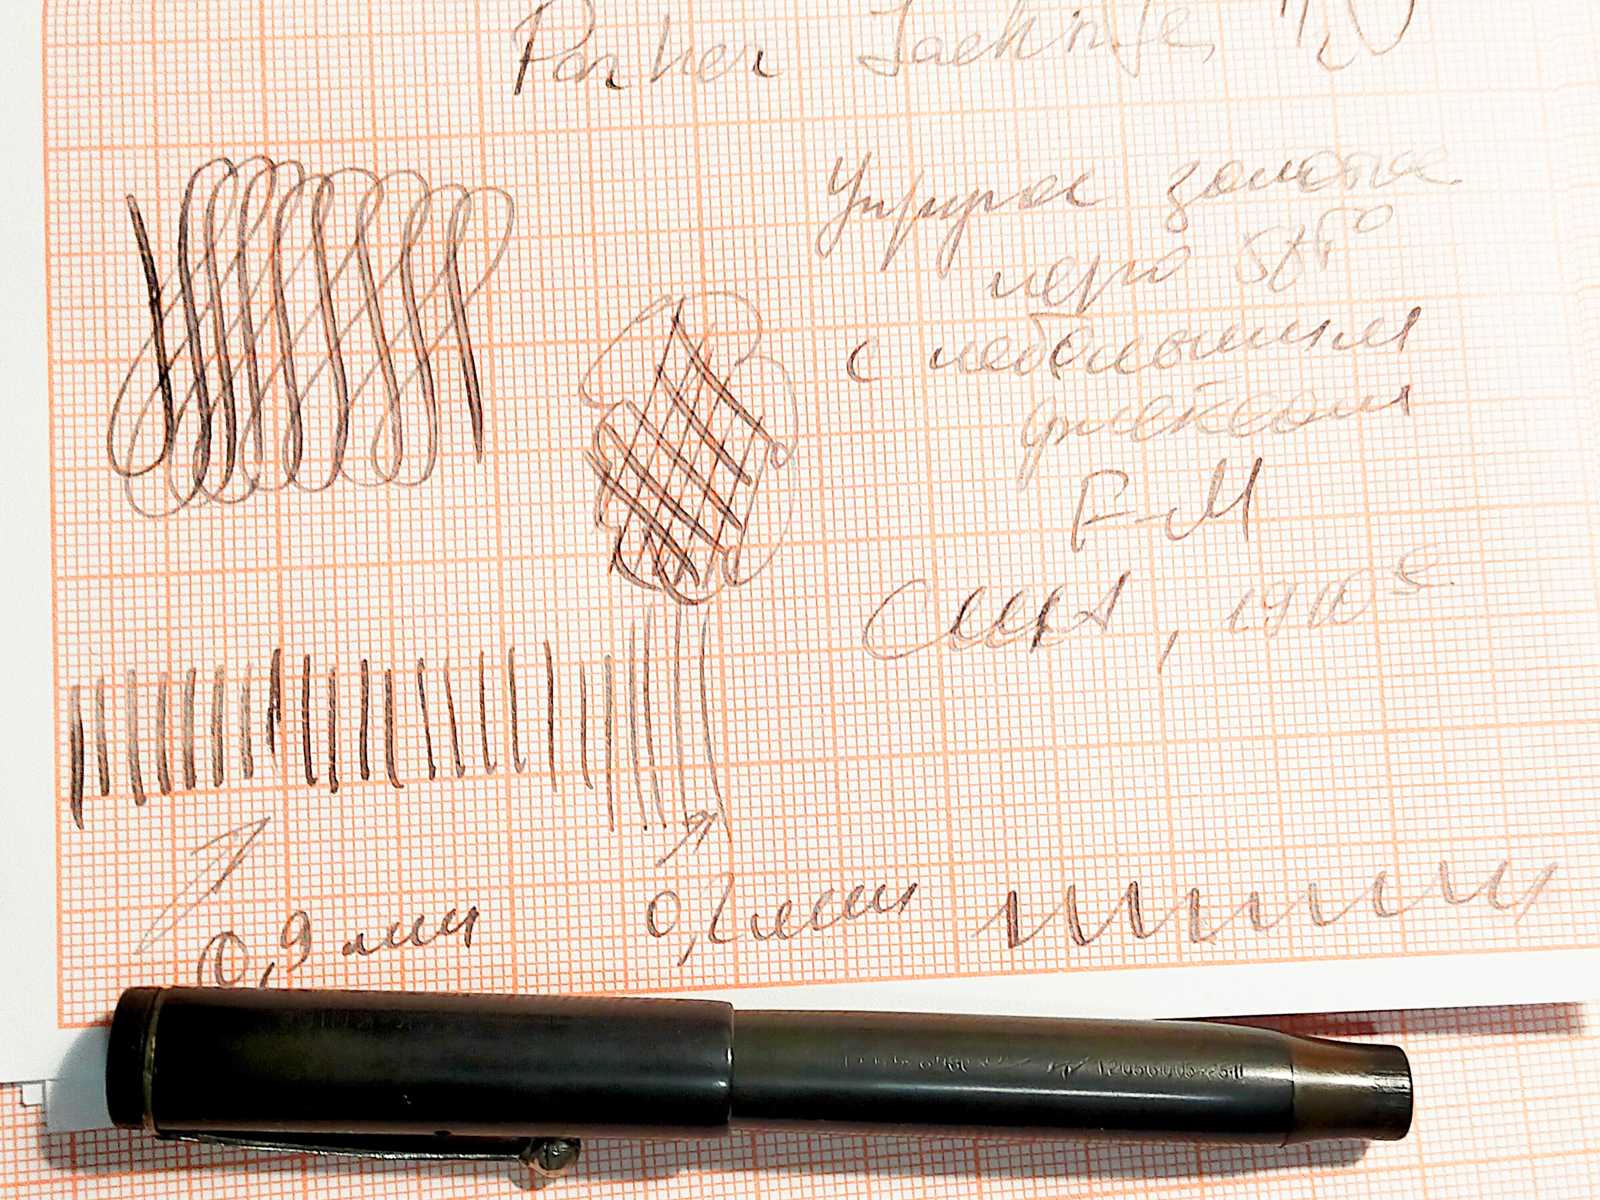 Parker Jackknife, 1/2 V
Упругое золотое
перо 585°
с небольшим
флексом
F-M
США, 1910е
0,9 мм
0,2 мм